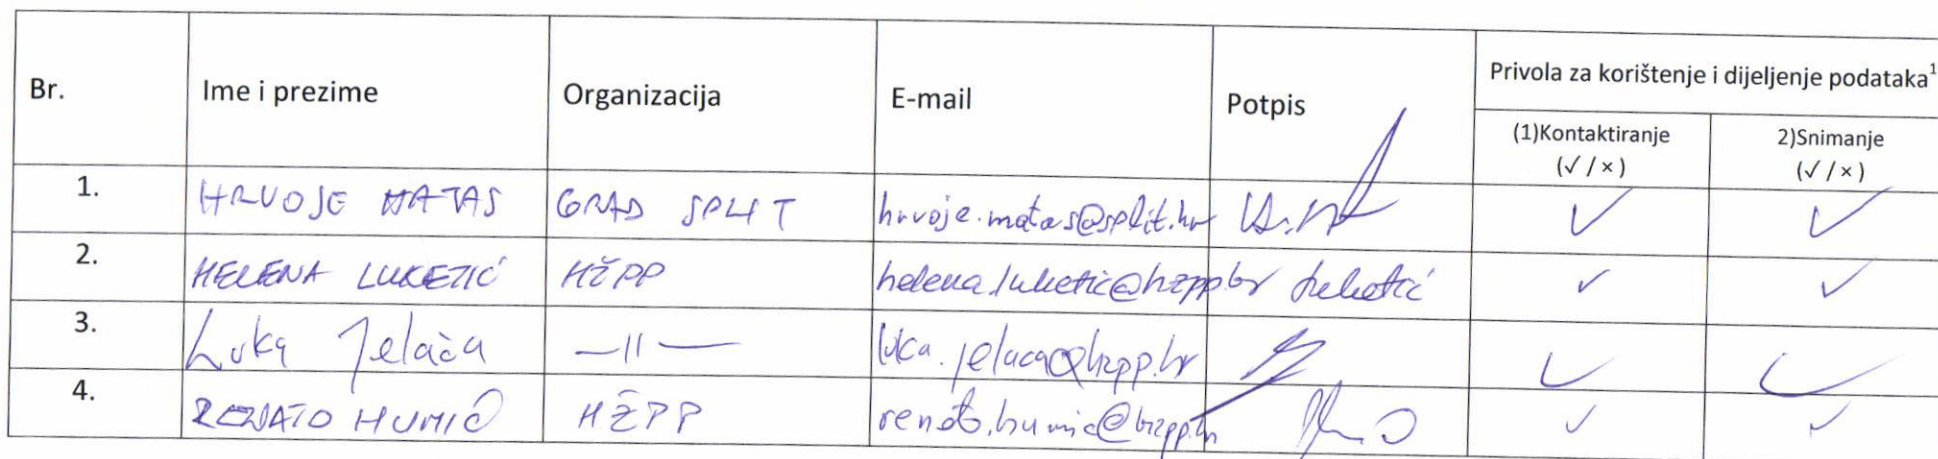 Br. Ime i prezime Organizacija E-mail Potpis Privola za korištenje i dijeljenje podataka¹
(1)Kontaktiranje (✓ / ×) 2)Snimanje (✓ / ×)
1. HRVOJE MATAS GRAD SPLIT hrvoje.matas@split.hr ✓ ✓
2. HELENA LUKETIĆ HŽPP helena.luketic@hzpp.hr Luketić ✓ ✓
3. Luka Jelača —11— luka.jelaca@hzpp.hr ✓ ✓
4. RENATO HUMIĆ HŽPP renato.humic@hzpp.hr ✓ ✓